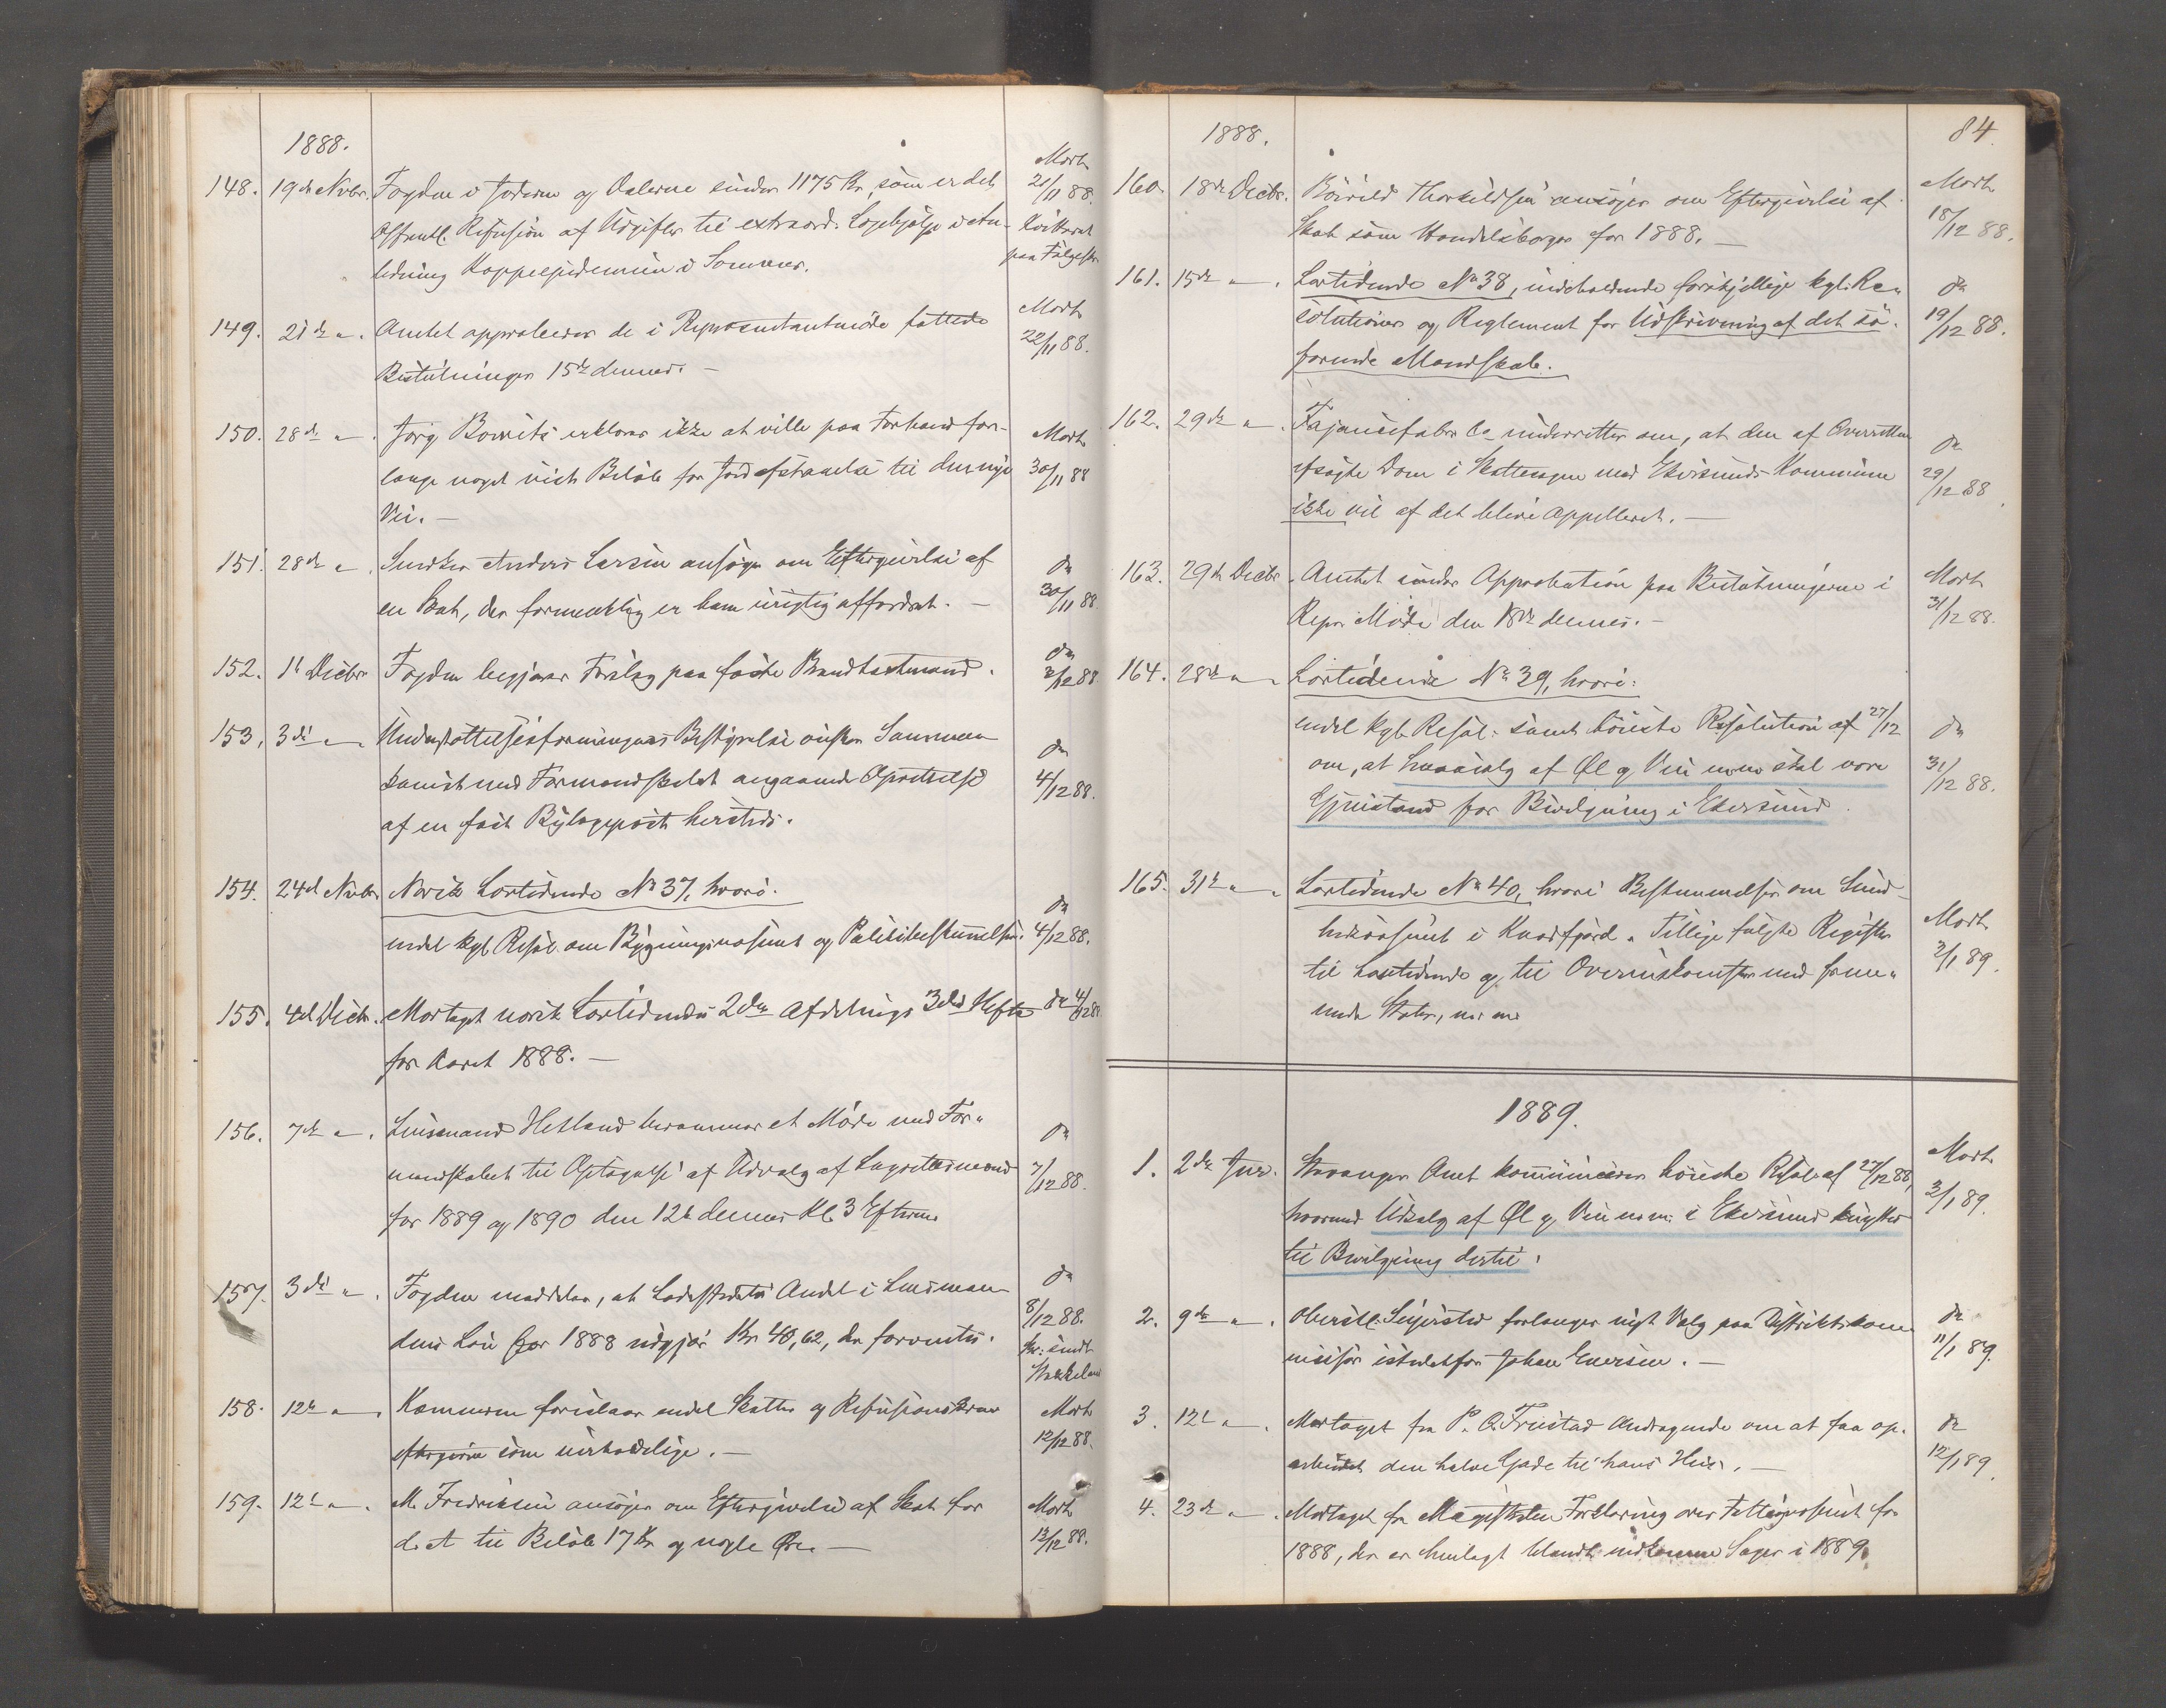 1888.
148. 19de Novbr. Fogden i Jæderen og Dalerne sender 1175 Kr, som er det
offentl. Refusion af Udgifter til extraord. Lægehjælp i An-
ledning Koppeepidemien i Sommer.
Modt. 21/11 88.
Kvitteret
paa Følgeskr.
149. 21de " . Amtet approberer de i Repræsentantmøde fattede
Beslutninger 15de dennes. —
Modt. 22/11 88.
150. 28de " . Jørg. erklærer ikke at ville paa Forhaand for-
lange noget vist Beløb for Jordafstaaelse til den nye
Vei. —
Modt. 30/11 88
151. 28de " . Anders Larsen ansøger om Eftergivelse af
en Skat, der formentlig er ham urigtig affordret. —
do 30/11 88.
152. 1ste Decbr Fogden begjærer Forslag paa første Brandtaxtmand.
do 3/12 88.
153. 3die " Understøttelsesforeningens Bestyrelse ønsker Sammen
komst med Formandskabet angaaende Oprettelse
af en fast Bylægepost hersteds.
do 4/12 88.
154. 24de Novbr. Norsk Lovtidende No 37, hvori:
endel kgl. Resol. om Bygningsvæsenet og Politibestemmelser.
do 4/12 88.
155. 4de Decbr. Modtaget norsk Lovtidendes 2den Afdelings 3die Hefte
for Aaret 1888. —
do 4/12 88
156. 7de " . Lensmand Hetland berammer et Møde med For-
mandskabet til Optagelse af Udvalg af Lagrettemænd
for 1889 og 1890 den 12te dennes Kl. 3 Efterm.
do 7/12 88.
157. 3die " . Fogden meddeler, at Ladestedets Andel i Lensman-
dens Løn for 1888 udgjør Kr 40,62, der forventes.
do 8/12 88.
Kr: sendt
158. 12te " . Kæmneren foreslaar endel Skatter og Refusionskrav
eftergivne som uerholdelige. —
Modt. 12/12 88.
159. 12te " . M. Fredriksen ansøger om Eftergivelse af Skat for
d. A. til Beløb 17 Kr og nogle Øre —
Modt 13/12 88.
1888.
84.
160. 18de Decbr. Thorkildsen ansøger om Eftergivelse af
Skat som Handelsborger for 1888. —
Modt. 18/12 88.
161. 15de " . Lovtidende No 38, indeholdende forskjellige kgl. Re-
solutioner og Reglement for Udskrivning af det sø-
farende Mandskab.
do 19/12 88.
162. 29de " . Fajancefabr. Co underretter om, at den af Overretten
afsagte Dom i Skattesagen mod Ekersunds Kommune
ikke vil af det blive Appelleret. —
do 29/12 88
163. 29de Decbr. Amtet sender Approbation paa Beslutningerne i
Repr. Møde den 18de dennes. —
Modt. 31/12 88.
164. 28de " . Lovtidende No 39, hvori:
endel kgl. Resol. samt høieste Resolution af 27/12
om, at Udsalg af Øl og Vin m.m. skal være
Gjenstand for Bevilgning i Ekersund.
do 31/12 88.
165. 31te " . Lovtidende No 40, hvori Bestemmelser om Sund-
hedsvæsenet i Kvæfjord. Tillige fulgte Register
til Lovtidende og til Overenskomster med frem-
mede Stater, m. m.
Modt. 2/1 89.
1889.
1. 2den Jnr. Stavanger Amt kommunicerer høieste Resol. af 27/12 88,
hvorved Udsalg af Øl og Vin m.m. i Ekersund knyttes
til Bevilgning dertil.
Modt. 3/1 89.
2. 9de " . Oberstl. Seierstad forlanger nyt Valg paa Distriktskom-
missær istedetfor Johan Eversen. —
do 11/1 89.
3. 12te " . Modtaget fra P. A. Frestad Andragende om at faa op-
arbeidet den halve Gade til hans Hus. —
do 12/1 89.
4. 23de " . Modtaget fra Magistraten Forklaring over Fattigvæsenet for
1888, der er henlagt blandt indkomne Sager i 1889.